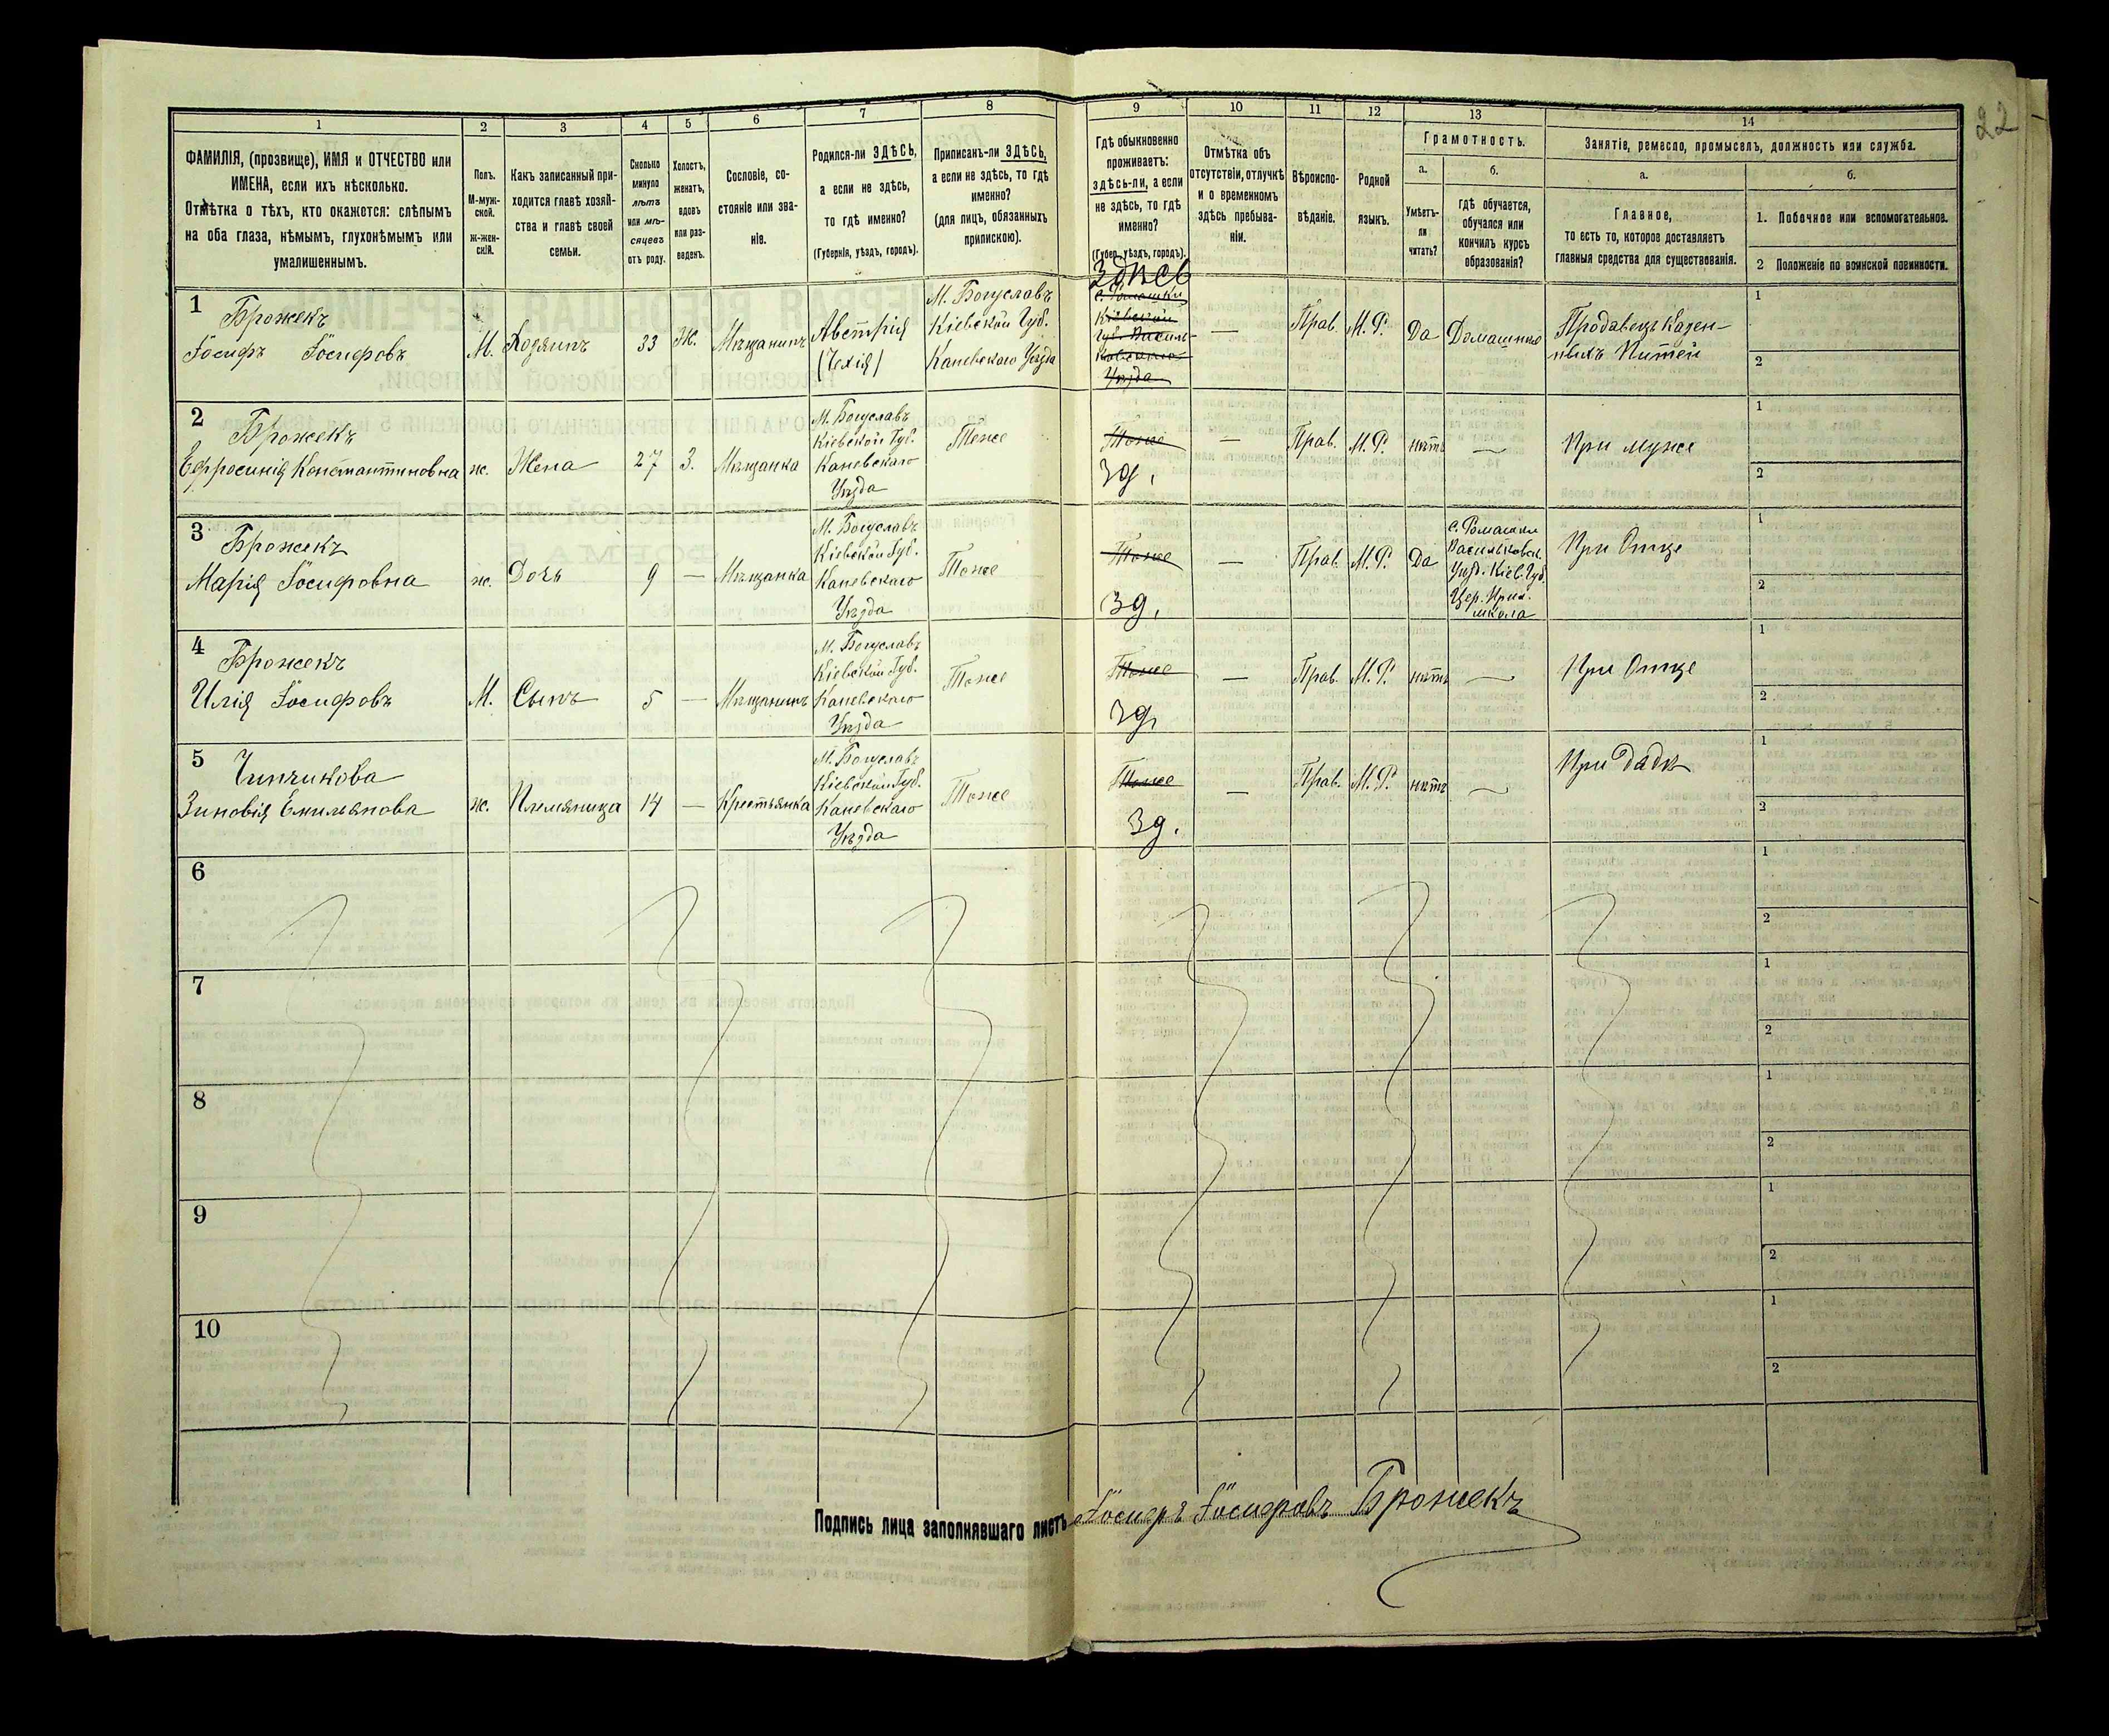 22
1
2
3
4
5
6
7
8
9
10
11
12
13
14
ФАМИЛІЯ, (прозвище), ИМЯ и ОТЧЕСТВО или
ИМЕНА, если ихъ нѣсколько.
Отмѣтка о тѣхъ, кто окажется: слѣпымъ
на оба глаза, нѣмымъ, глухонѣмымъ или
умалишеннымъ.
Полъ.
М-муж-
ской.
ж-жен-
скій.
Какъ записанный при-
ходится главѣ хозяй-
ства и главѣ своей
семьи.
Сколько
минуло
лѣтъ
или мѣ-
сяцевъ
отъ роду.
Холостъ,
женатъ,
вдовъ
или раз-
веденъ.
Сословіе, со-
стояніе или зва-
ніе.
Родился-ли ЗДѢСЬ,
а если не здѣсь,
то гдѣ именно?
(Губернія, уѣздъ, городъ).
Приписанъ-ли ЗДѢСЬ,
а если не здѣсь, то гдѣ
именно?
(для лицъ, обязанныхъ
припискою).
Гдѣ обыкновенно
проживаетъ:
ЗДѢСЬ-ЛИ, а если
не здѣсь, то гдѣ
именно?
(Губер., уѣздъ, городъ).
Отмѣтка объ
отсутствіи, отлучкѣ
и о временномъ
здѣсь пребыва-
ніи.
Вѣроиспо-
вѣданіе.
Родной
языкъ.
Грамотность.
а.
Умѣетъ-
ли
читать?
б.
гдѣ обучается,
обучался или
кончилъ курсъ
образованія?
Занятіе, ремесло, промыселъ, должность или служба.
а.
Главное,
то есть то, которое доставляетъ
главныя средства для существованія.
б.
1. Побочное или вспомогательное.
2 Положеніе по воинской повинности.
1
Брожекъ
Іосифъ Іосифовъ
М.
Хозяинъ
33
Ж.
Мѣщанинъ
Австрія
(Чехія)
М. Богуславъ
Кіевской Губ.
Каневскаго Уѣзда
Здѣсь
с. Ромашки
Кіевской
Губ. Василь-
ковскаго
Уѣзда
—
Прав.
М.Р.
Да
Домашнее
Продавецъ Казен-
ныхъ Питей
1
2
2
Брожекъ
Ефросинія Константиновна
ж.
Жена
27
З.
Мѣщанка
М. Богуславъ
Кіевской Губ.
Каневскаго
Уѣзда
Тоже
Тоже
Зд.
—
Прав.
М.Р.
нѣтъ
—
При мужѣ
1
2
3
Брожекъ
Марія Іосифовна
ж.
Дочь
9
—
Мѣщанка
М. Богуславъ
Кіевской Губ.
Каневскаго
Уѣзда
Тоже
Тоже
Зд.
—
Прав.
М.Р.
Да
с. Ромашки
Васильковск.
Уѣзд. Кіев. Губ.
Цер. Прих.
школа
При Отцѣ
1
2
4
Брожекъ
Илія Іосифовъ
М.
Сынъ
5
—
Мѣщанинъ
М. Богуславъ
Кіевской Губ.
Каневскаго
Уѣзда
Тоже
Тоже
Зд.
—
Прав.
М.Р.
нѣтъ
—
При Отцѣ
1
2
5
Чипчикова
Зиновія Емильянова
ж.
Племяница
14
—
Крестьянка
М. Богуславъ
Кіевской Губ.
Каневскаго
Уѣзда
Тоже
Тоже
Зд.
—
Прав.
М.Р.
нѣтъ
—
При Дядѣ
1
2
6
1
2
7
1
2
8
1
2
9
1
2
10
1
2
Подпись лица заполнявшаго листъ Іосифъ Іосифовъ Брожекъ